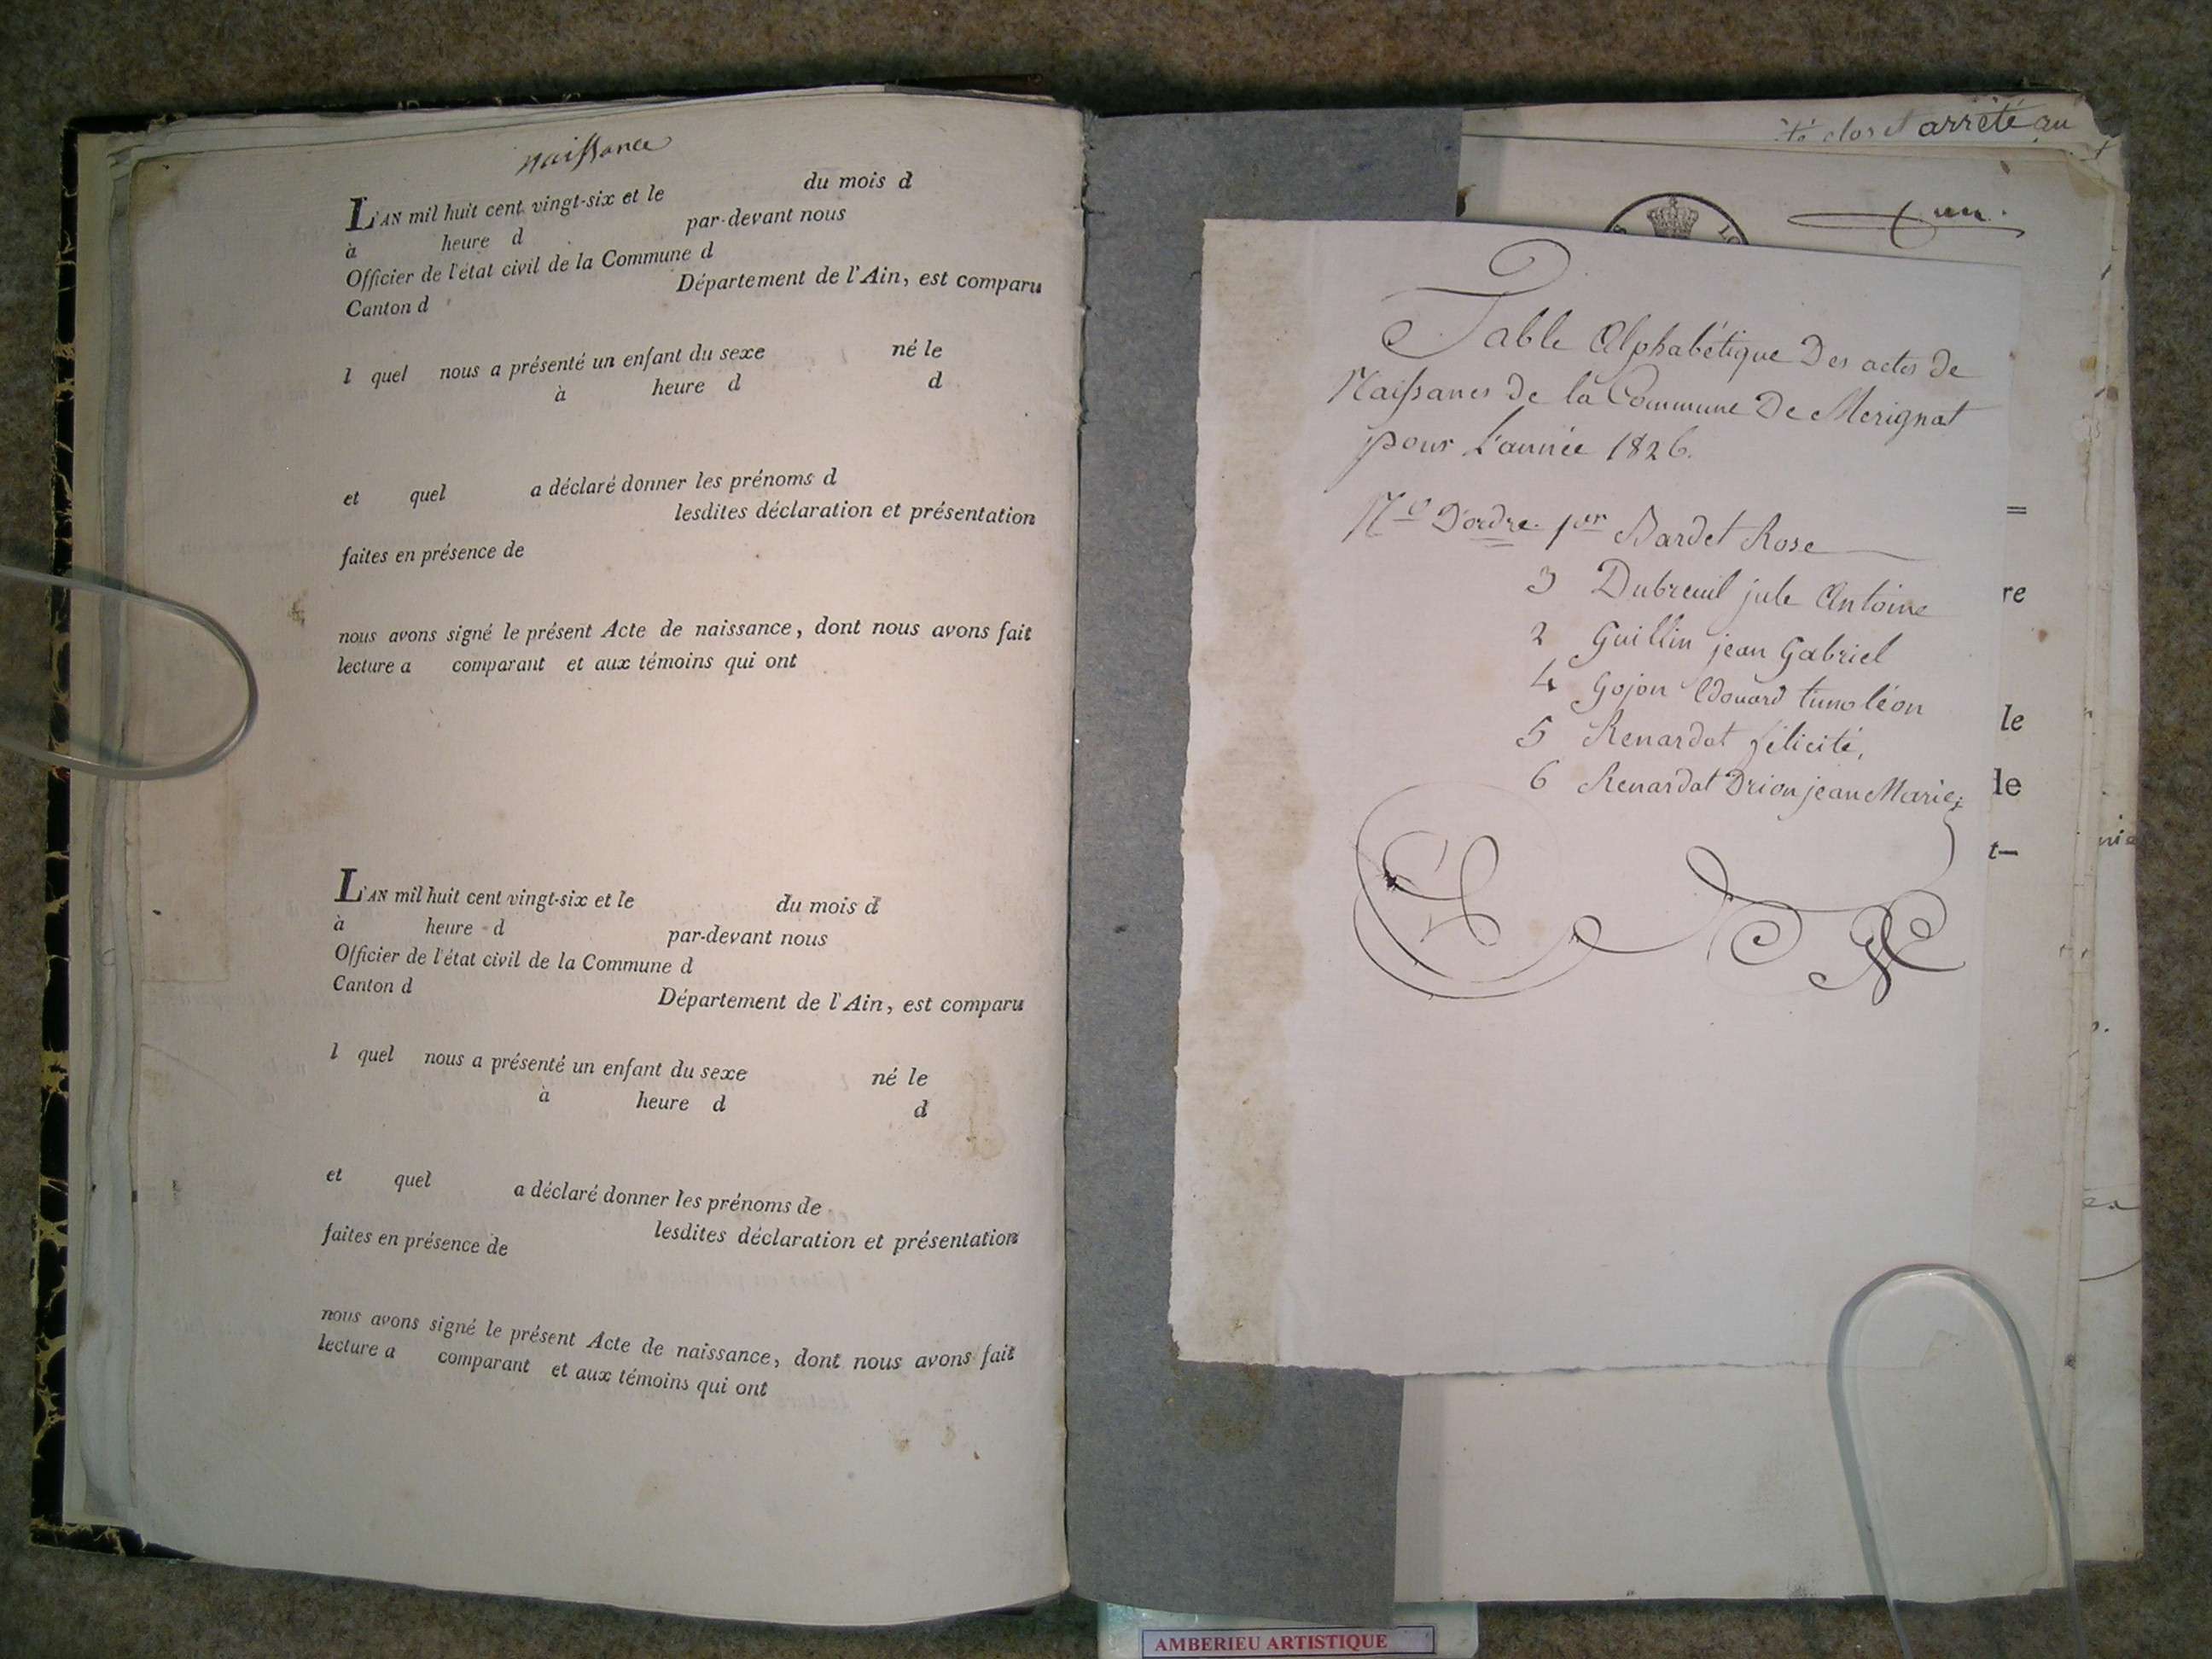 Naissance
L'AN mil huit cent vingt-six et le du mois d
à heure d par-devant nous
Officier de l'état civil de la Commune d
Canton d Département de l'Ain, est comparu
l quel nous a présenté un enfant du sexe né le
à heure d d
et quel a déclaré donner les prénoms d
lesdites déclaration et présentation
faites en présence de
nous avons signé le présent Acte de naissance, dont nous avons fait
lecture a comparant et aux témoins qui ont
L'AN mil huit cent vingt-six et le du mois d
à heure d par-devant nous
Officier de l'état civil de la Commune d
Canton d Département de l'Ain, est comparu
l quel nous a présenté un enfant du sexe né le
à heure d d
et quel a déclaré donner les prénoms de
lesdites déclaration et présentation
faites en présence de
nous avons signé le présent Acte de naissance, dont nous avons fait
lecture a comparant et aux témoins qui ont
clos et arrêté au
Table Alphabétique Des actes de
Naissances de la Commune De Merignat
pour L'année 1826.
No D'ordre. 1er Bardet Rose
3 Dubreuil jule Antoine
2 Guillin jean Gabriel
4 Gojon Edouard timoléon
5 Renardat félicité,
6 Renardat Drion jean Marie;
=
re
le
le
t—
AMBERIEU ARTISTIQUE